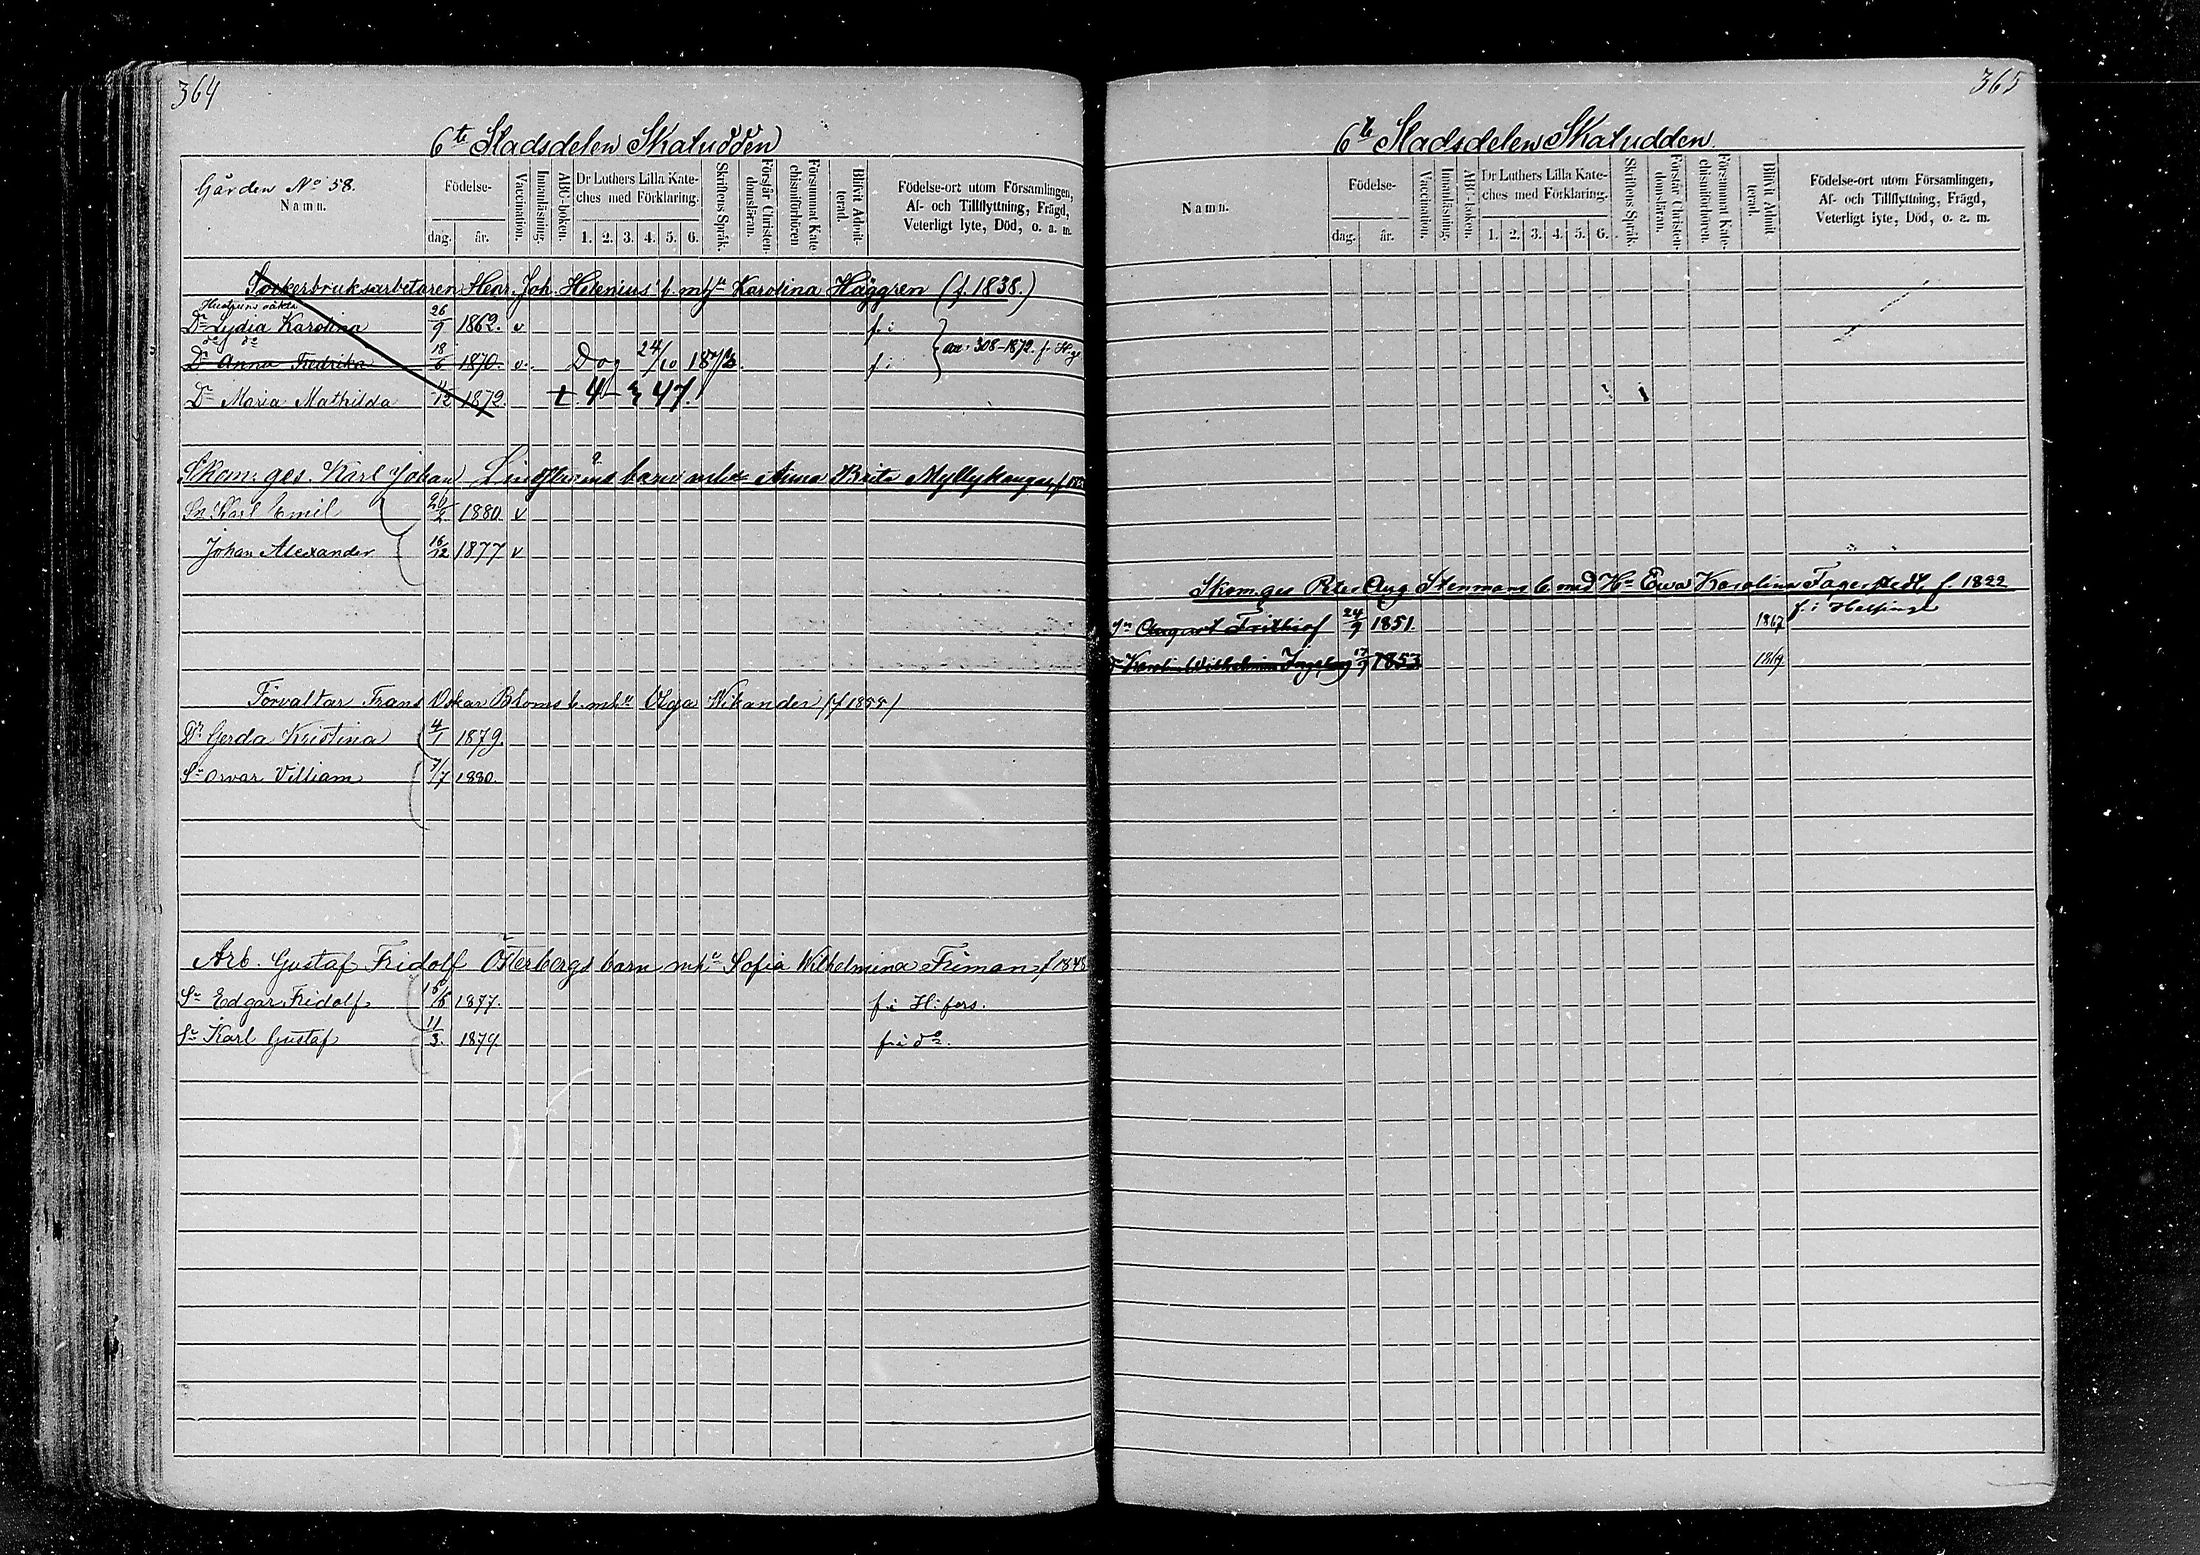 364
6te Stadsdelen Skatudden
Gården No 58.
Namn.
Födelse-
dag. år.
Vaccination.
Innanläsning.
ABC-boken.
Dr Luthers Lilla Kate-
ches med Förklaring.
1. 2. 3. 4. 5. 6.
Skriftens Språk.
Förstår Christen-
domsläran.
Försummat Kate-
chismiförhören
Blifvit Admit-
terad.
Födelse-ort utom Församlingen,
Af- och Tillflyttning, Frägd,
Veterligt lyte, Död, o. a. m.
Sockerbruksarbetaren Henr. Joh. Helenius b. m. Karolina Häggren (f. 1838.)
Hustruns oäkta
Dr Lydia Karolina 26/9 1862. v f. i
do do
Dr Anna Fredrika 18/6 1870. v. Dog 24/10 187 f. i 308-1872. f.
Dr Maria Mathilda /12 1872. 4 47.
Skom: ges. Karl Johan barn Anna Brita
Sn Karl Emil 26/2 1880. v
Johan Alexander 16/12 1877 v
Förvaltar Frans Oskar Bloms b. Olga Wikander (f 1855)
Dr Gerda Kristina 4/1 1879.
Sn Orvar Villiam 7/7 1880.
Arb. Gustaf Fridolf Österbergs barn Sofia Wilhelmina Friman f 1848
Sn Edgar Fridolf 1877. f. i H:fors.
Sn Karl Gustaf 11/3. 1879. f. i do.
365
6te Stadsdelen Skatudden.
Namn.
Födelse-
dag. år.
Vaccination.
Innanläsning.
ABC-boken.
Dr Luthers Lilla Kate-
ches med Förklaring.
1. 2. 3. 4. 5. 6.
Skriftens Språk.
Förstår Christen-
domsläran.
Försummat Kate-
chismiförhören.
Blifvit Admit-
terad.
Födelse-ort utom Församlingen,
Af- och Tillflyttning, Frägd,
Veterligt lyte, Död, o. a. m.
Skom. ges Peter Aug Stenmans b. med Ewa Karolina Fagerstedt, f. 1822
Sn August Frithiof 24/9 1851. 1867 f. i
Wilhelmina 1853